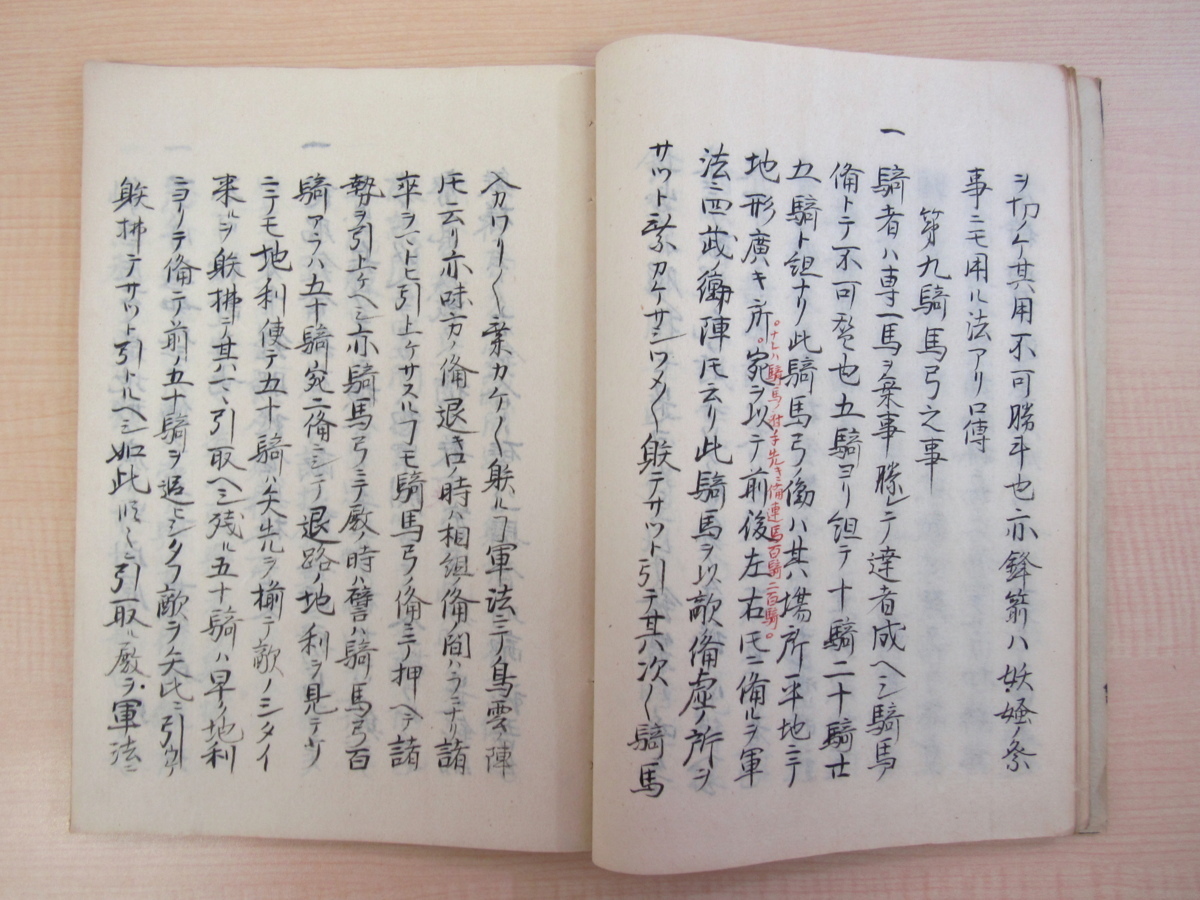 ヲ切ノケ其用不可勝斗也亦鋒箭ハ妖ノ祭
事ニモ用ル法アリ口傳
第九騎馬弓之事
一
騎者ハ専一馬ヲ乗事勝レテ達者成ヘシ騎馬ノ
備トテ不可也五騎ヨリ組テ十騎二十騎廿
五騎ト組ナリ此騎馬弓ノ働ハ其場所平地ニテ
地形廣キ所宛ヲ以テ前後左右ニ備ルヲ軍
ナレハ騎馬ノ射手先キニ備連馬百騎二百騎
法ニ四武ノ衝陣ト云リ此騎馬ヲ以敵備虚ノ所ヲ
サット乗カケサシツメ〱射テサット引テ其次〱騎馬
入カワリ〱乗カケ〱射ルヿ軍法ニテ鳥雲ノ陣
ト云リ亦味方ノ備退キ口ノ時ハ相組ノ備ノ間ハラニナリ諸
卒ヲ一トヒ引上ケサスルヿモ騎馬弓ノ備ニテ押ヘテ諸
勢ヲ引上ケヘシ亦騎馬弓ニテ殿ノ時ハ譬ハ騎馬弓百
一
騎アラハ五十騎宛二備ニシテ退路ノ地利ヲ見テ
ニテモ地ノ利使テ五十騎ハ矢先ヲ揃テ敵ノシタイ
来ルヲ射拂テ其ハ引取ヘシ残ル五十騎ハ早ク地利
ニヨリテ備テ前ノ五十騎ヲ追シタフ敵ヲ矢比ニ引
射拂テサット引トルヘシ如此順〱ニ引取ル殿ヲ軍法ニ